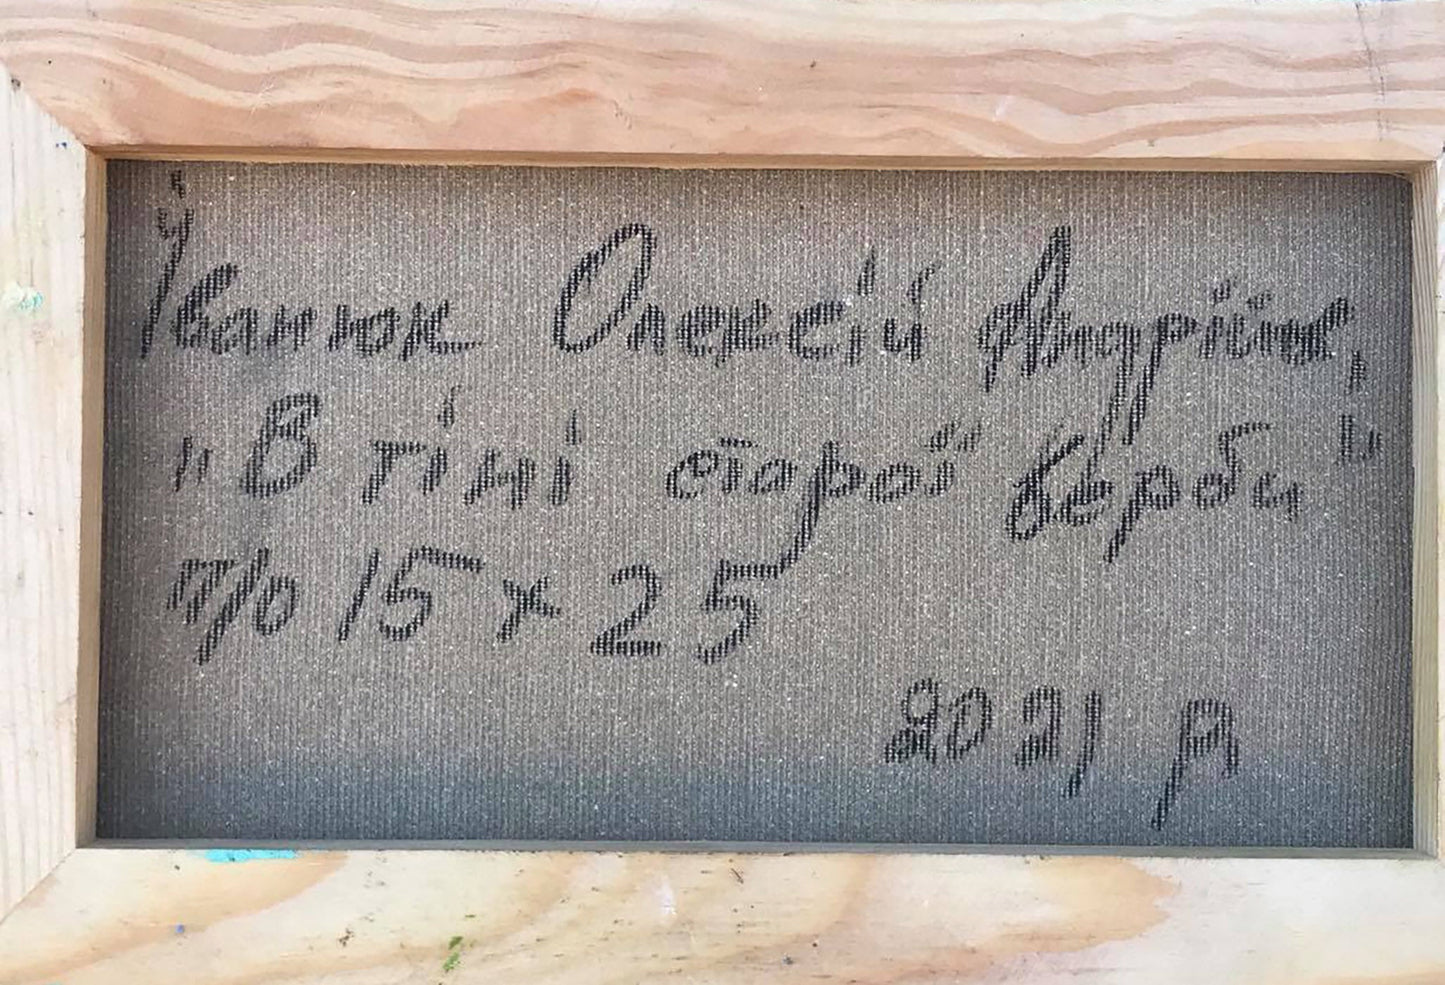 Іванюк Олексій Андрійов,
„В тіні старої верби"
п/о 15 х 25
2021 р